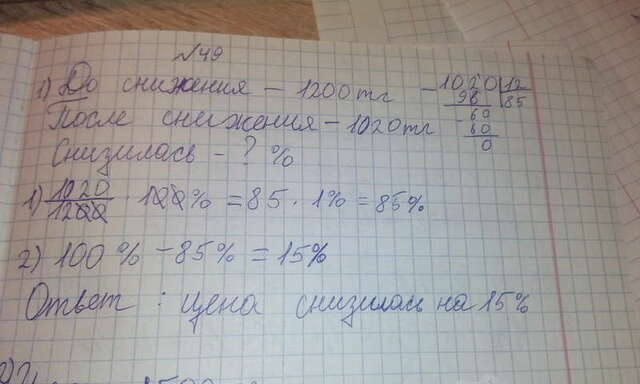 №49
1) До снижения – 1200тг
После снижения – 1020тг
Снизилась – ? %
– 1020 | 12
96 | 85
– 60
60
0
1) 1020/1200 · 100% = 85 · 1% = 85%
2) 100% – 85% = 15%
Ответ : цена снизилась на 15%